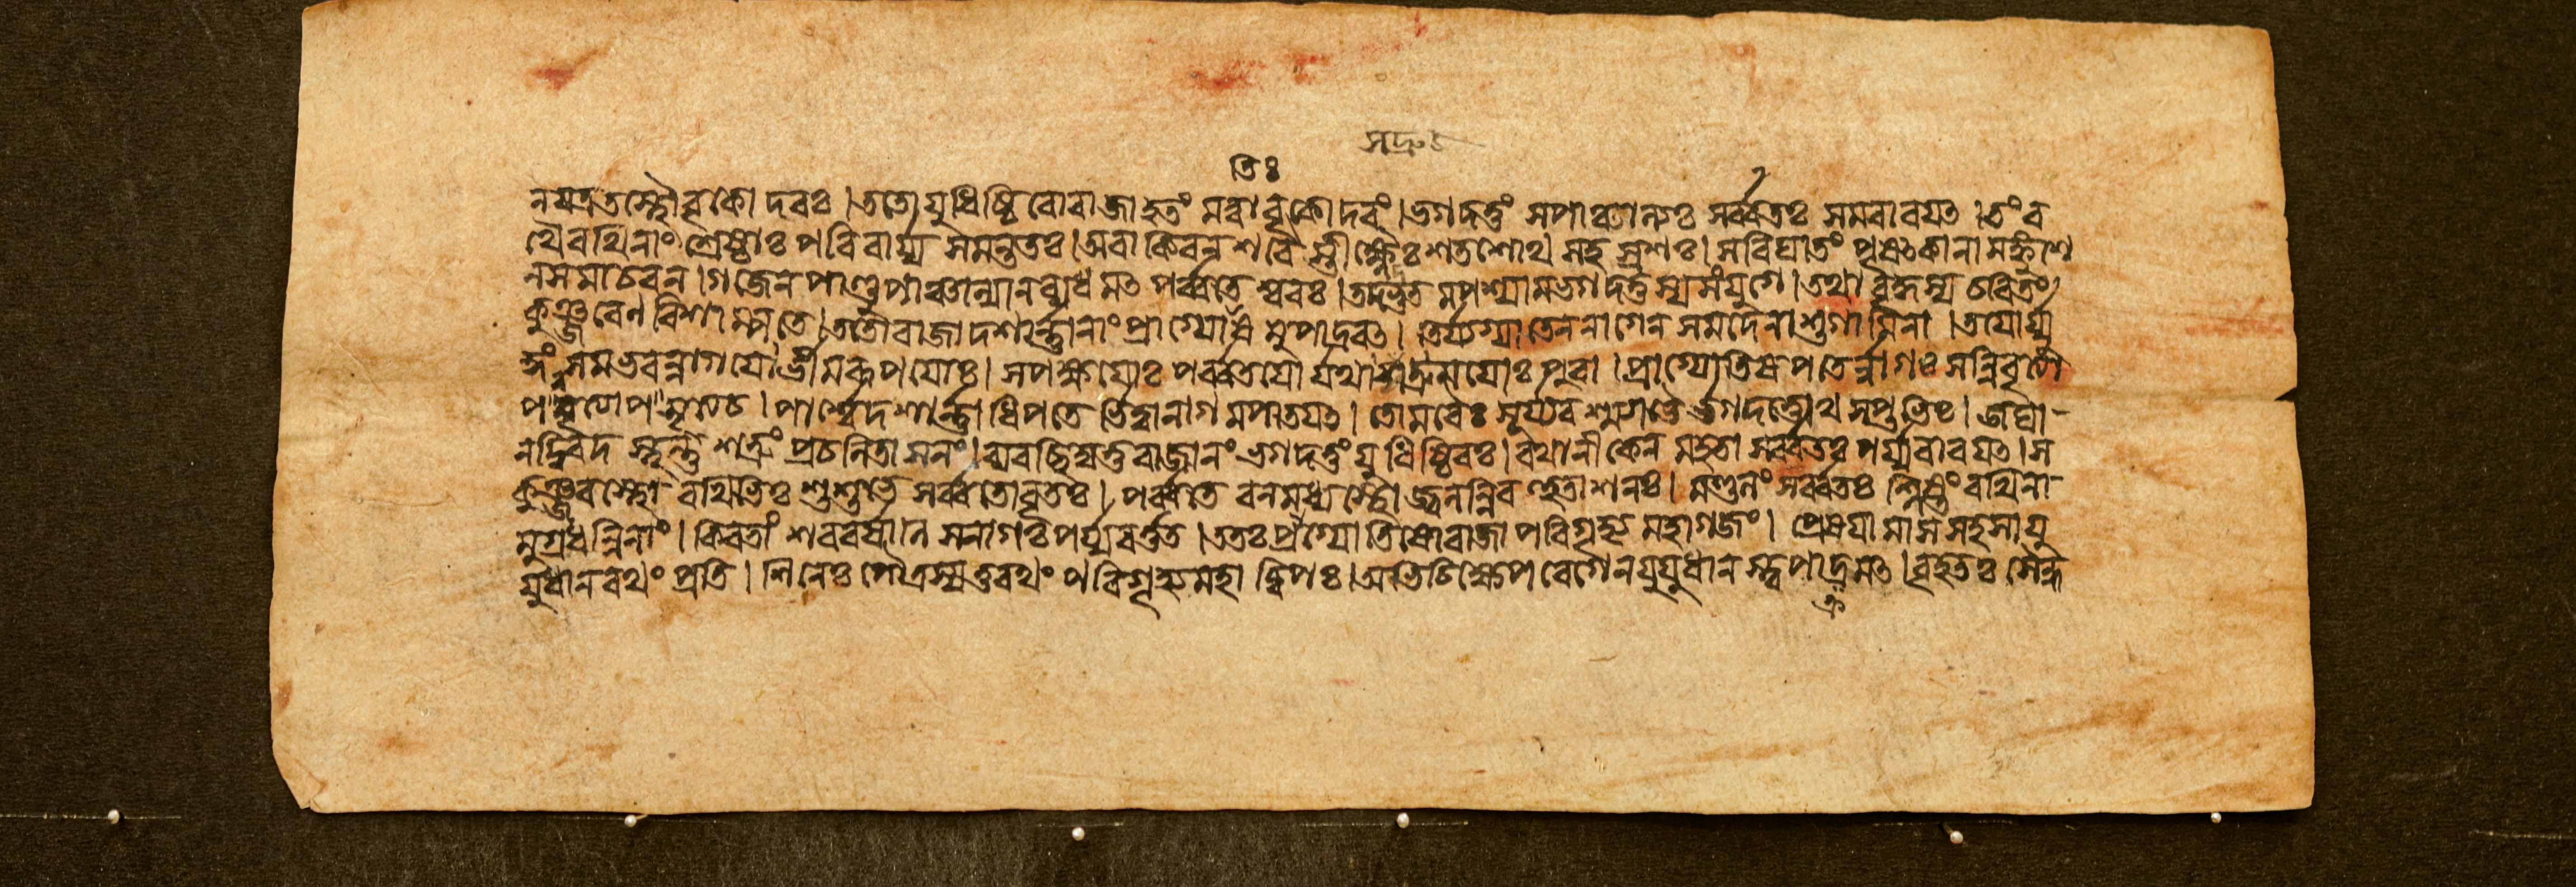 সদ্রু
তিঃ
ন যত্র তস্থৌ বৃকোদরঃ । ততো যুধিষ্ঠিরো রাজা হতং মত্বা বৃকোদরং । ভগদত্তং সপাঞ্চালঃ সর্ব্বতঃ সমবারয়ৎ । তং র
থৈ রথিনাং শ্রেষ্ঠাঃ পরিবার্য্য সমন্ততঃ । অবাকিরন শরৈস্তীক্ষ্ণৈঃ শতশোথ সহস্রশঃ । স বিঘাতং পৃষৎকানামঙ্কুশে
ন সমাচরন । গজেন পাণ্ডুপাঞ্চালান ব্যধমৎ পর্ব্বতেশ্বরঃ । তদদ্ভুতমপশ্যাম ভগদত্তস্য সংযুগে । তথা বৃদ্ধস্য চরিতং
কুঞ্জরেণ বিশাম্পতে । ততো রাজা দশার্ন্নানাং প্রাগ্যোতিষমুপাদ্রবৎ । তির্য্যগ্যাতেন নাগেন সমদেনাশুগামিনা । তয়োর্যু
দ্ধং সমভবন্নাগয়োর্ভীমরূপয়োঃ । সপক্ষয়োঃ পর্ব্বতয়োর্যথা সদ্রুময়োঃ পুরা । প্রাগ্যোতিষপতের্ন্নাগঃ সন্নিবৃত্যা
পসৃত্য চ । পার্শ্বে দশার্ন্নাধিপতের্ভিত্বা নাগমপাতয়ৎ । তোমরৈঃ সূর্য্যরশ্ম্যাভৈর্ভগদত্তোথ সপ্তভিঃ । জঘা
ন দ্বিরদস্থন্তং শত্রুং প্রচলিতাসনং । ব্যবচ্ছিদ্য তু রাজানং ভগদত্তং যুধিষ্ঠিরঃ । রথানীকেন মহতা সর্ব্বতঃ পর্য্যবারয়ৎ । স
কুঞ্জরস্থো রথিভিঃ শুশুভে সর্ব্বতো বৃতঃ । পর্ব্বতে বনমধ্যস্থো জ্বলন্নিব হুতাশনঃ । মণ্ডলং সর্ব্বতঃ শ্লিষ্টং রথিনা
মুগ্রধন্বিনাং । কিরতাং শরবর্ষাণি স নাগঃ পর্য্যবর্ত্তত । ততঃ প্রাগ্যোতিষো রাজা পরিগৃহ্য মহাগজং । প্রেষয়ামাস সহসা যু
যুধানরথং প্রতি । শিনেঃ পৌত্রস্য তু রথং পরিগৃহ্য মহাদ্বিপঃ । অভিচিক্ষেপ বেগেন যুযুধানস্ত্বপাক্রমৎ । বৃহতঃ সৈন্ধ
ক্র